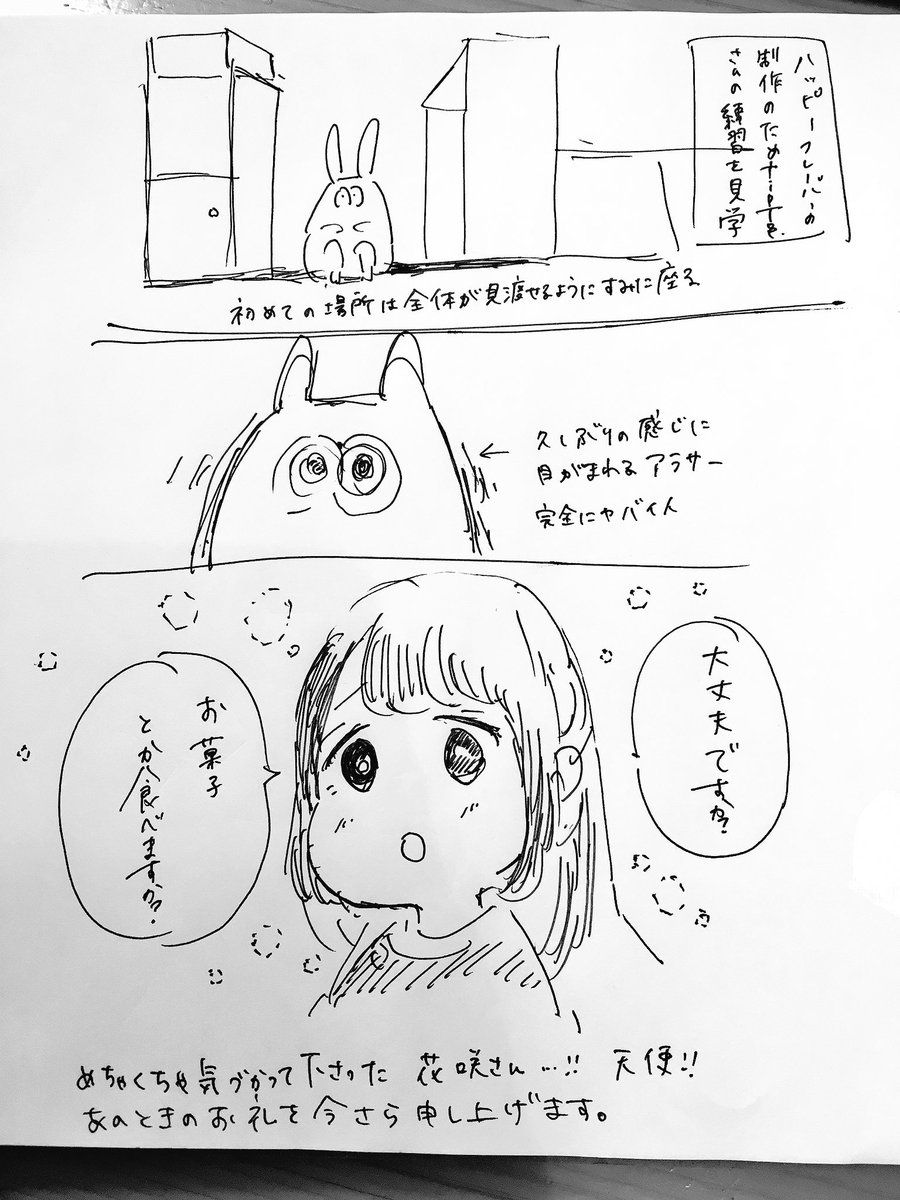 ハッピーフレーバーの
制作のためtipToe.
さんの練習を見学
初めての場所は全体が見渡せるようにすみに座る
← 久しぶりの感じに
目がまわるアラサー
完全にヤバイ人
大丈夫ですか?
お菓子
とか食べますか?
めちゃくちゃ気づかって下さった 花咲さん…!! 天使!!
あのときのお礼を今さら申し上げます。